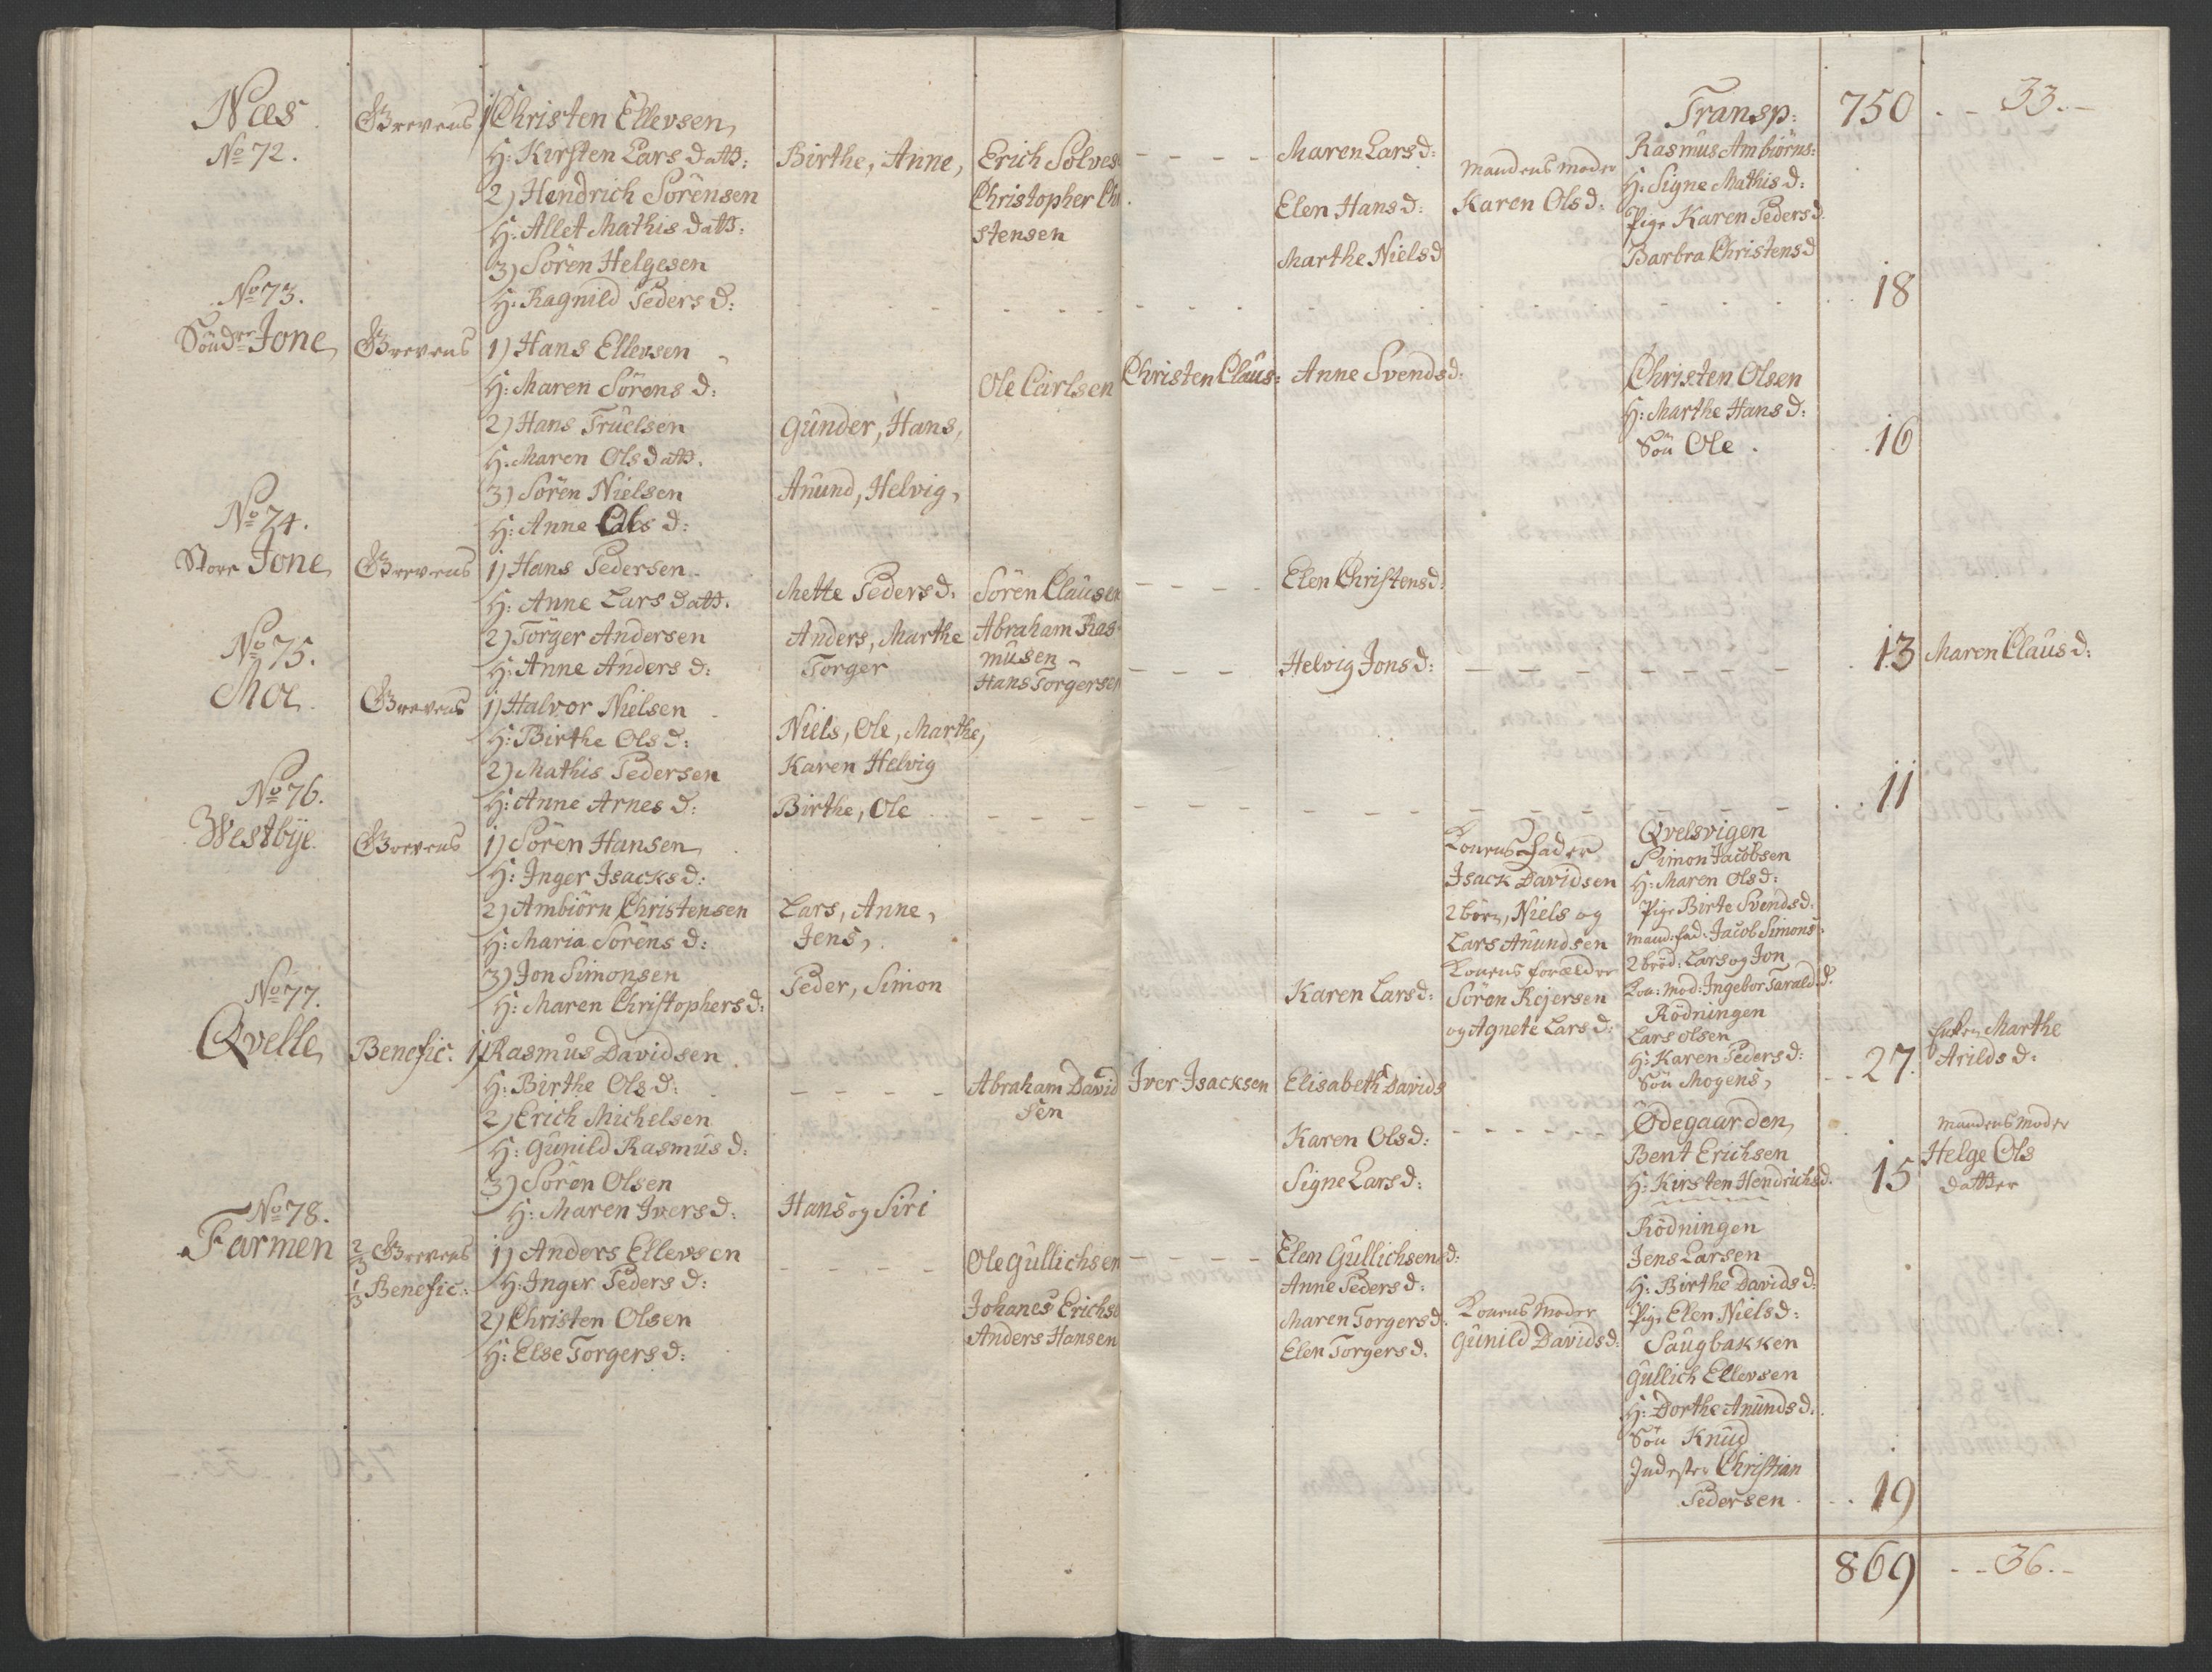 Næs
No 72.
Grevens
1 Christen Ellevsen,
H: Kirsten Lars datt:
2) Hendrich Sörensen
H: Allet Mathis datt:
3) Sören Helgesen
H: Ragnild Peders d:
Birthe, Anne,
Erich Solves:
Christopher Chri
stensen
Maren Lars d:
Elen Hans d:
Marthe Niels d
Mandens moder
Karen Ols d:
Transp: 750 - - 33. -
Rasmus Ambiörns:
H: Signe Mathis d:
Pige Karen Peders d.
Barbra Christens d
18
No 73.
Söndre Jone
Grevens
1) Hans Ellevsen
H: Maren Sörens d:
2) Hans Truelsen
H: Maren Ols datt.
3) Sören Nielsen
H: Anne Ols d:
Gunder, Hans,
Anund, Helvig,
Ole Carlsen
Christen Claus:
Anne Svends d:
Christen Olsen
H: Marthe Hans d:
Sön Ole .
16
No 74.
Store Jone
Grevens
1) Hans Pedersen
H: Anne Lars datt.
2) Torger Andersen
H: Anne Anders d:
Mette Peders d.
Anders, Marthe
Torger
Sören Clausen
Abraham Ras
musen
Hans Torgersen
Elen Christens d:
Helvig Jons d:
13
Maren Claus d:
No 75.
Moe
Grevens
1) Halvor Nielsen
H: Birthe Ols d:
2) Mathis Pedersen
H: Anne Arnes d:
Niels, Ole, Marthe,
Karen Helvig
Birthe, Ole
11
No 76.
Westbye
Grevens
1) Sören Hansen
H: Inger Isacks d:
2) Ambiörn Christensen
H: Maria Sörens d:
3) Jon Simonsen
H: Maren Christophers d:
Lars, Anne,
Jens,
Peder, Simon
Karen Lars d:
Konens Fader
Isack Davidsen
2 börn, Niels og
Lars Anundsen
Konens forældre
Sören Rejersen
og Agnete Lars d:
Qvelsvigen
Simon Jacobsen
H: Maren Ols d:
Pige Birte Svends d:
Mand: fad: Jacob Simons:
2 bröd: Lars og Jon
Kon: Mod: Ingebor Tarald d.
Rödningen
Lars Olsen
H: Karen Peders d:
Sön Mogens,
27.
Enken Marthe
Arilds d:
No 77.
Qvelle
Benefic:
1 Rasmus Davidsen
H: Birthe Ols d:
2) Erich Michelsen
H: Gunild Rasmus d:
3) Sören Olsen
H: Maren Ivers d:
Hans og Siri
Abraham David
sen
Iver Isacksen
Elisabeth Davids
Karen Ols d:
Signe Lars d:
Ødegaarden
Bent Erichsen
H: Kirsten Hendrichs d.
15
Mandens moder
Helge Ols
datter
No 78.
Farmen
2/3 Grevens
1/3 Benefic:
1) Anders Ellevsen
H: Inger Peders d:
2) Christen Olsen
H: Else Torgers d:
Ole Gullichsen
Johanes Erichse
Anders Hansen
Elen Gullichsens d:
Anne Peders d:
Maren Torgers d.
Elen Torgers d.
Konens Moder
Gunild Davids d:
Rödningen
Jens Larsen
H: Birthe Davids d.
Pige Elen Niels d:
Saugbakken
Gullich Ellevsen
H: Dorthe Anunds d.
Sön Knud
Inderster Christian
Pedersen
19
869 - - 36. -